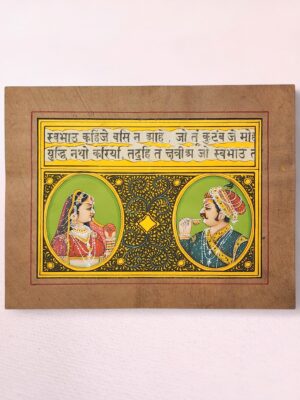 स्वभाउ कहिजे वसि न आहे, जो तूं कुटंब जे मोह
युधि नथो करियां, तद॒हि त ज॒वीअ जो स्वभाउ त